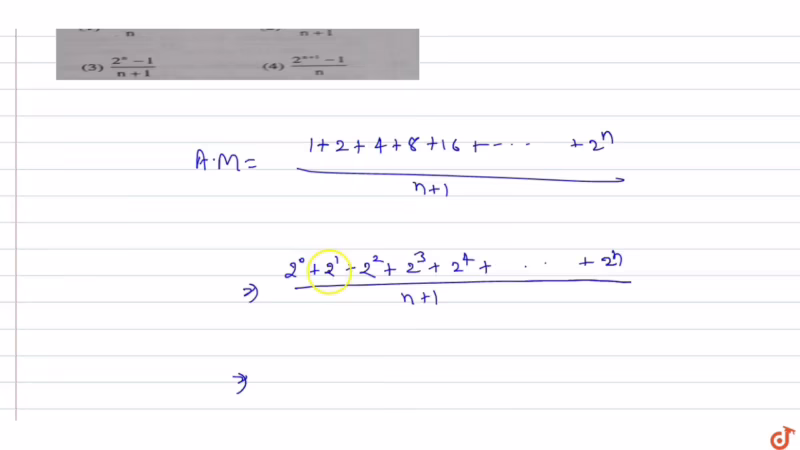 n n+1
(3) 2ⁿ − 1 / n + 1 (4) 2ⁿ⁺¹ − 1 / n
A.M = 1+2+4+8+16+-... +2ⁿ / n+1
⇒ 2⁰+2¹-2²+2³+2⁴+ . . . +2ⁿ / n+1
⇒